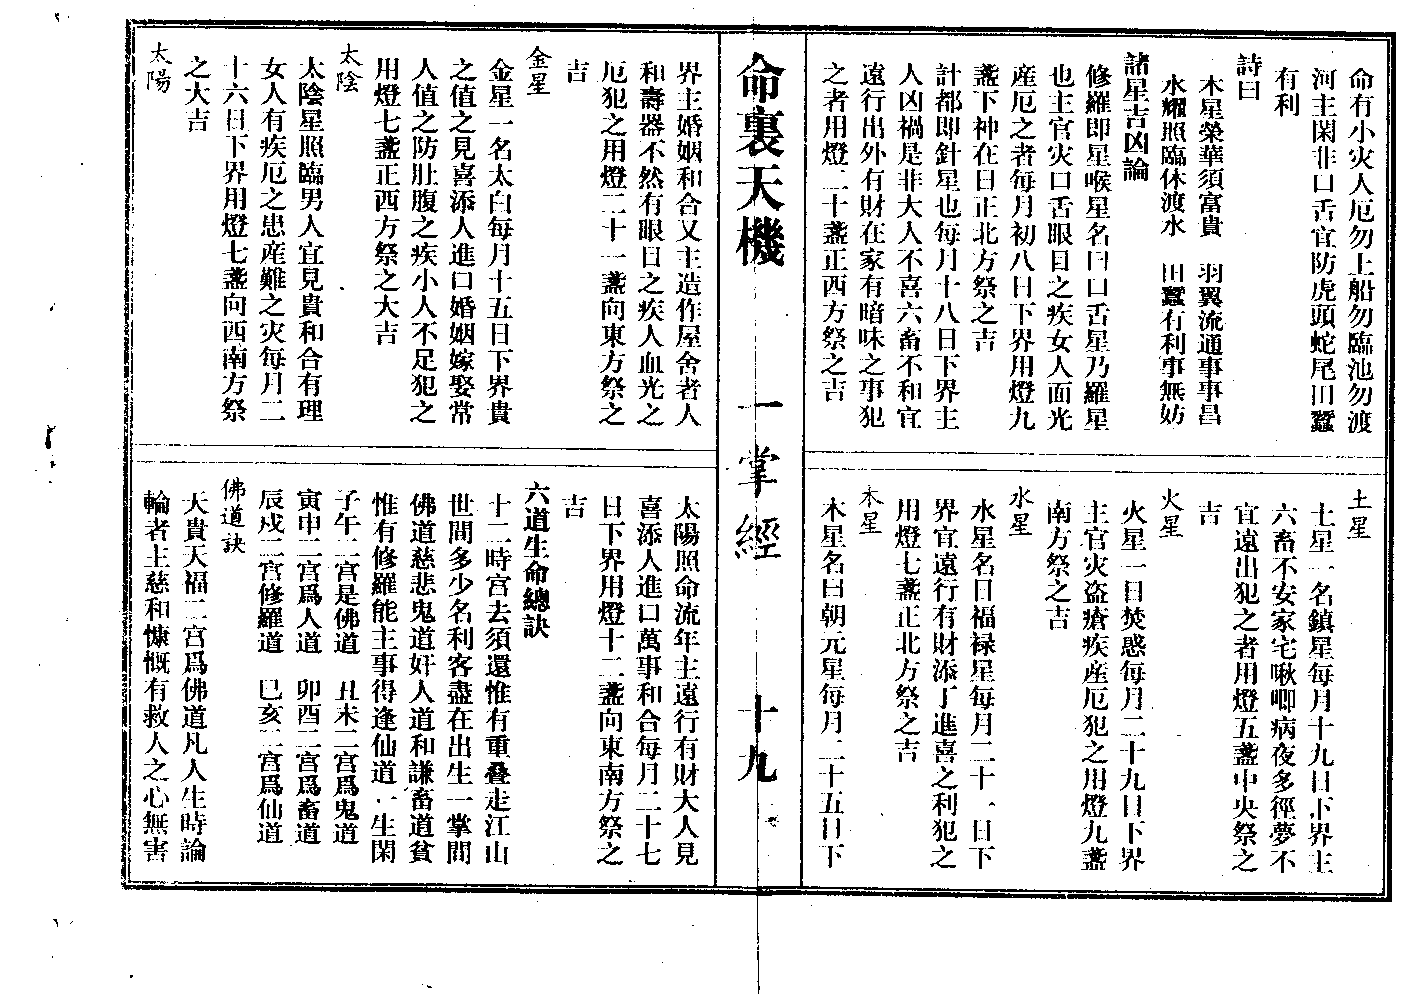 命有小灾人厄勿上船勿臨池勿渡
河主閑非口舌宜防虎頭蛇尾田蠶
有利
詩曰
木星榮華須富貴　羽翼流通事事昌
水耀照臨休渡水　田蠶有利事無妨
諸星吉凶論
修羅即星喉星名曰口舌星乃羅星
也主官灾口舌眼目之疾女人面光
産厄之者每月初八日下界用燈九
盞下神在日正北方祭之吉
計都即針星也每月十八日下界主
人凶禍是非大人不喜六畜不和宜
遠行出外有財在家有暗昧之事犯
之者用燈二十盞正西方祭之吉
土星
土星一名鎮星每月十九日下界主
六畜不安家宅啾唧病夜多徑夢不
宜遠出犯之者用燈五盞中央祭之
吉
火星
火星一曰焚惑每月二十九日下界
主官灾盗瘡疾産厄犯之用燈九盞
南方祭之吉
水星
水星名曰福禄星每月二十一日下
界宜遠行有財添丁進喜之利犯之
用燈七盞正北方祭之吉
木星
木星名曰朝元星每月二十五日下
命裏天機
一掌經
十九
界主婚姻和合又主造作屋舍者人
和壽器不然有眼目之疾人血光之
厄犯之用燈二十一盞向東方祭之
吉
金星
金星一名太白每月十五日下界貴
之值之見喜添人進口婚姻嫁娶常
人值之防肚腹之疾小人不足犯之
用燈七盞正西方祭之大吉
太陰
太陰星照臨男人宜見貴和合有理
女人有疾厄之患産難之灾每月二
十六日下界用燈七盞向西南方祭
之大吉
太陽
太陽照命流年主遠行有財大人見
喜添人進口萬事和合每月二十七
日下界用燈十二盞向東南方祭之
吉
六道生命總訣
十二時宮去須還惟有重叠走江山
世間多少名利客盡在出生一掌間
佛道慈悲鬼道奸人道和謙畜道貧
惟有修羅能主事得逢仙道一生閑
子午二宮是佛道　丑未二宮爲鬼道
寅申二宮爲人道　卯酉二宮爲畜道
辰戍二宮修羅道　巳亥二宮爲仙道
佛道訣
天貴天福二宮爲佛道凡人生時論
輪者主慈和慷慨有救人之心無害